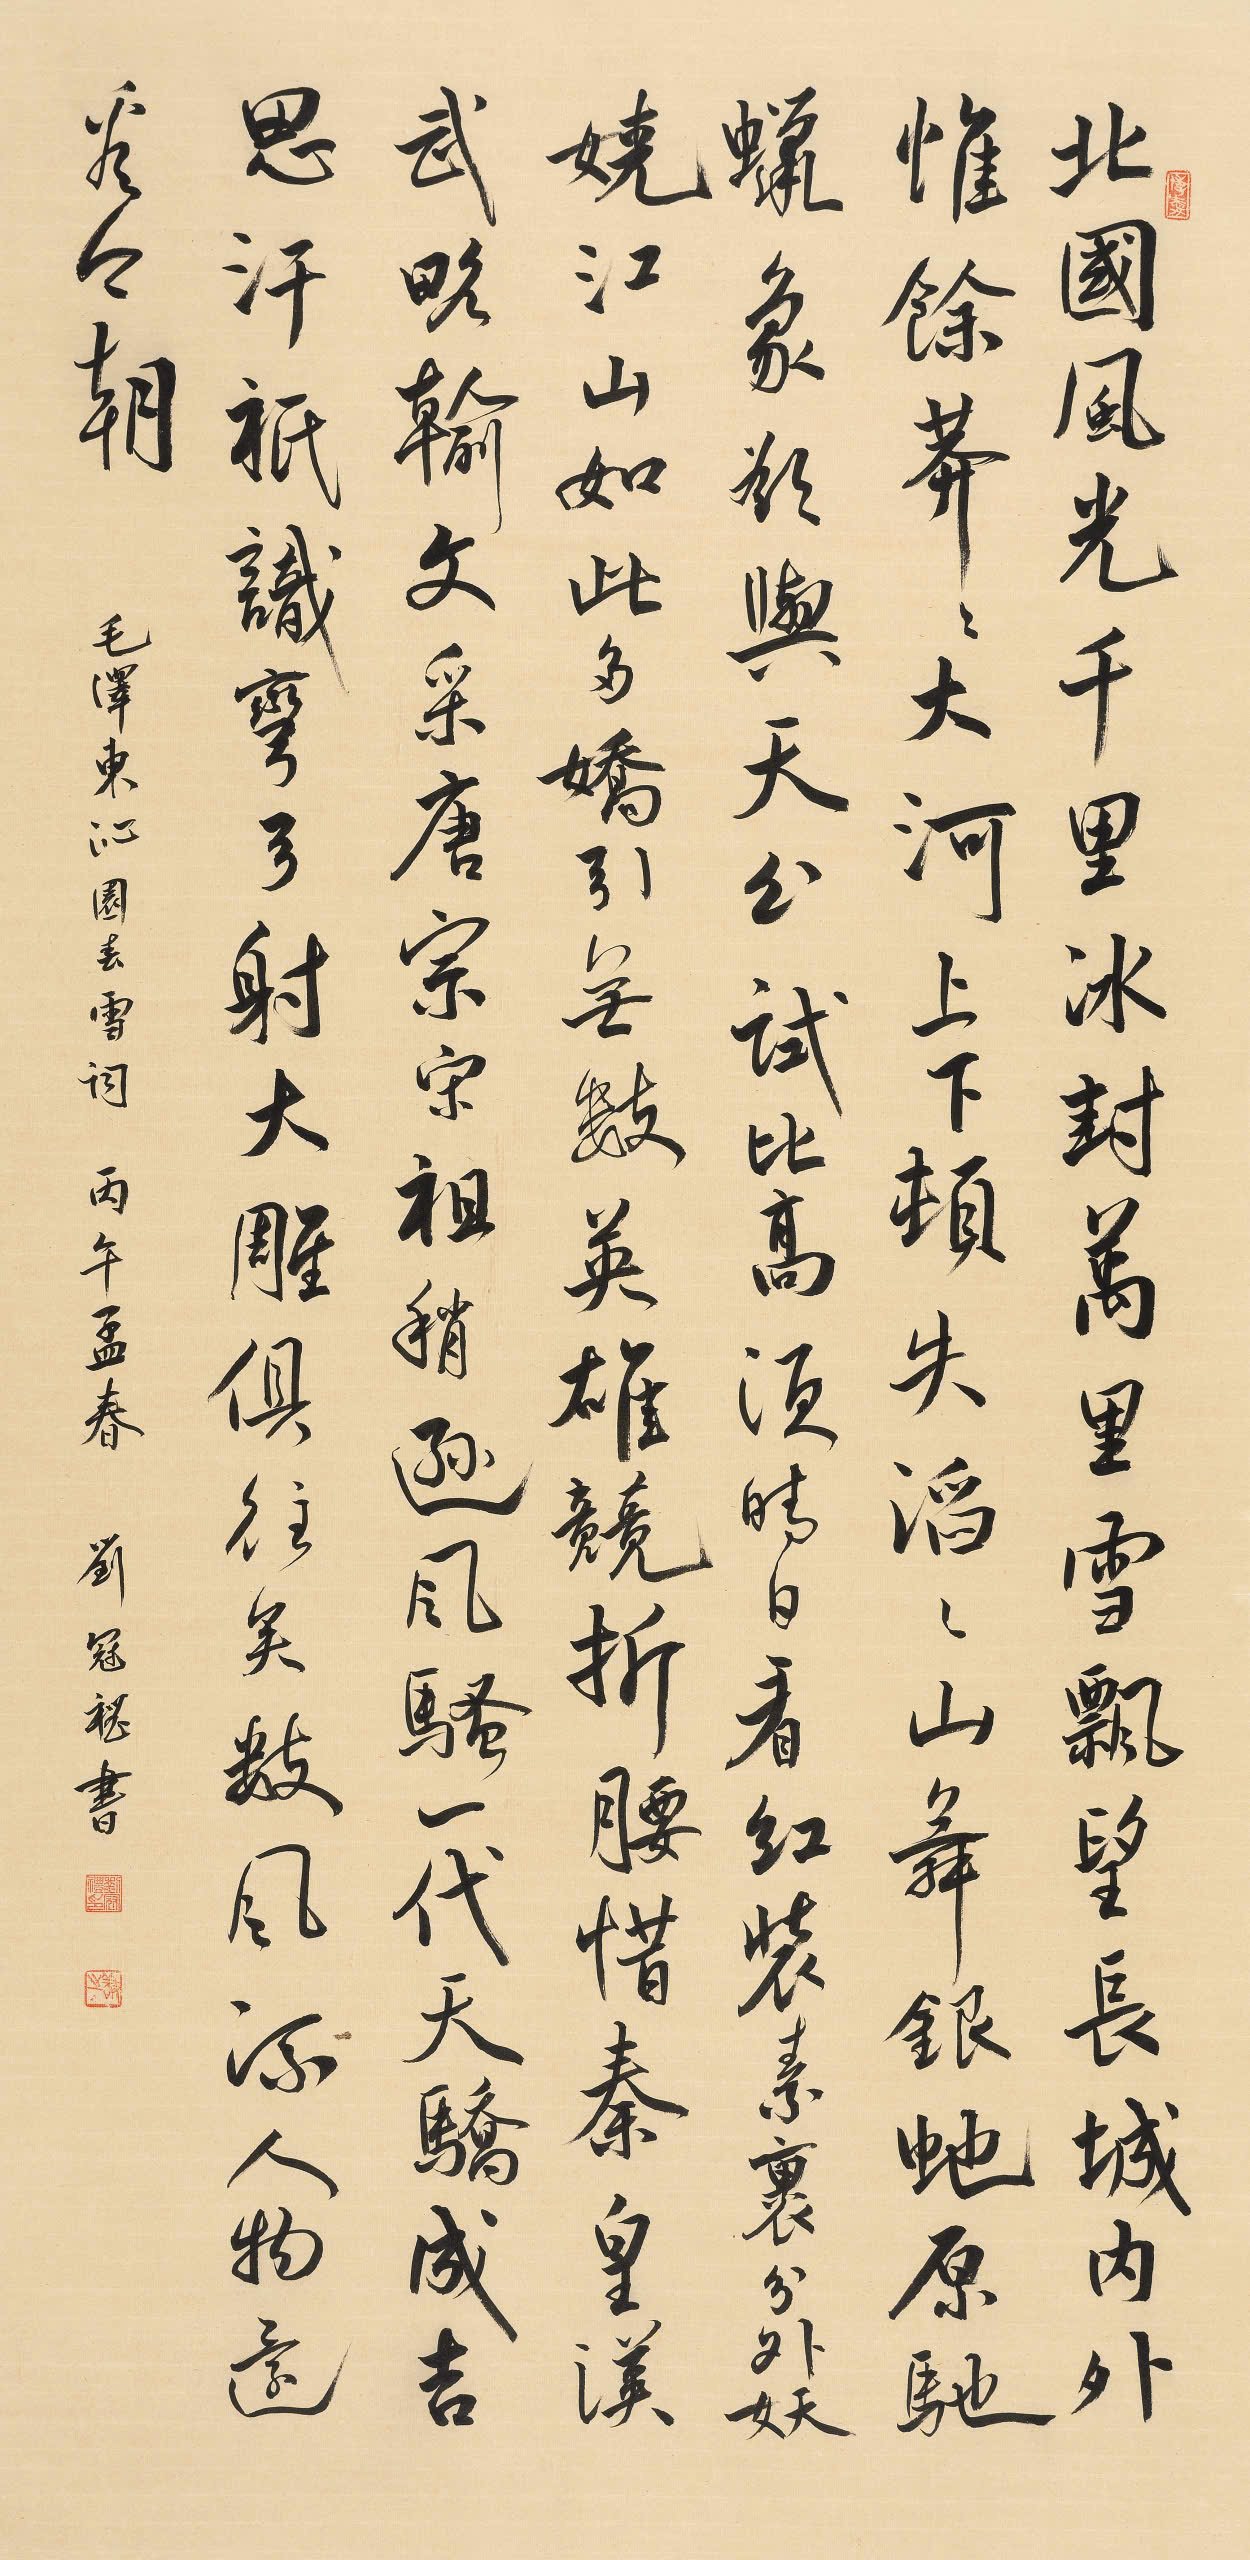 北國風光千里冰封萬里雪飄望長城内外
惟餘莽〻大河上下頓失滔〻山舞銀蛇原馳
蠟象欲與天公試比高須晴日看紅裝素裹分外妖
嬈江山如此多嬌引無數英雄競折腰惜秦皇漢
武略輸文采唐宗宋祖稍遜風騷一代天驕成吉
思汗祇識彎弓射大雕俱往矣數風流人物還
看今朝
毛澤東沁園春雪詞 丙午孟春 劉冠書